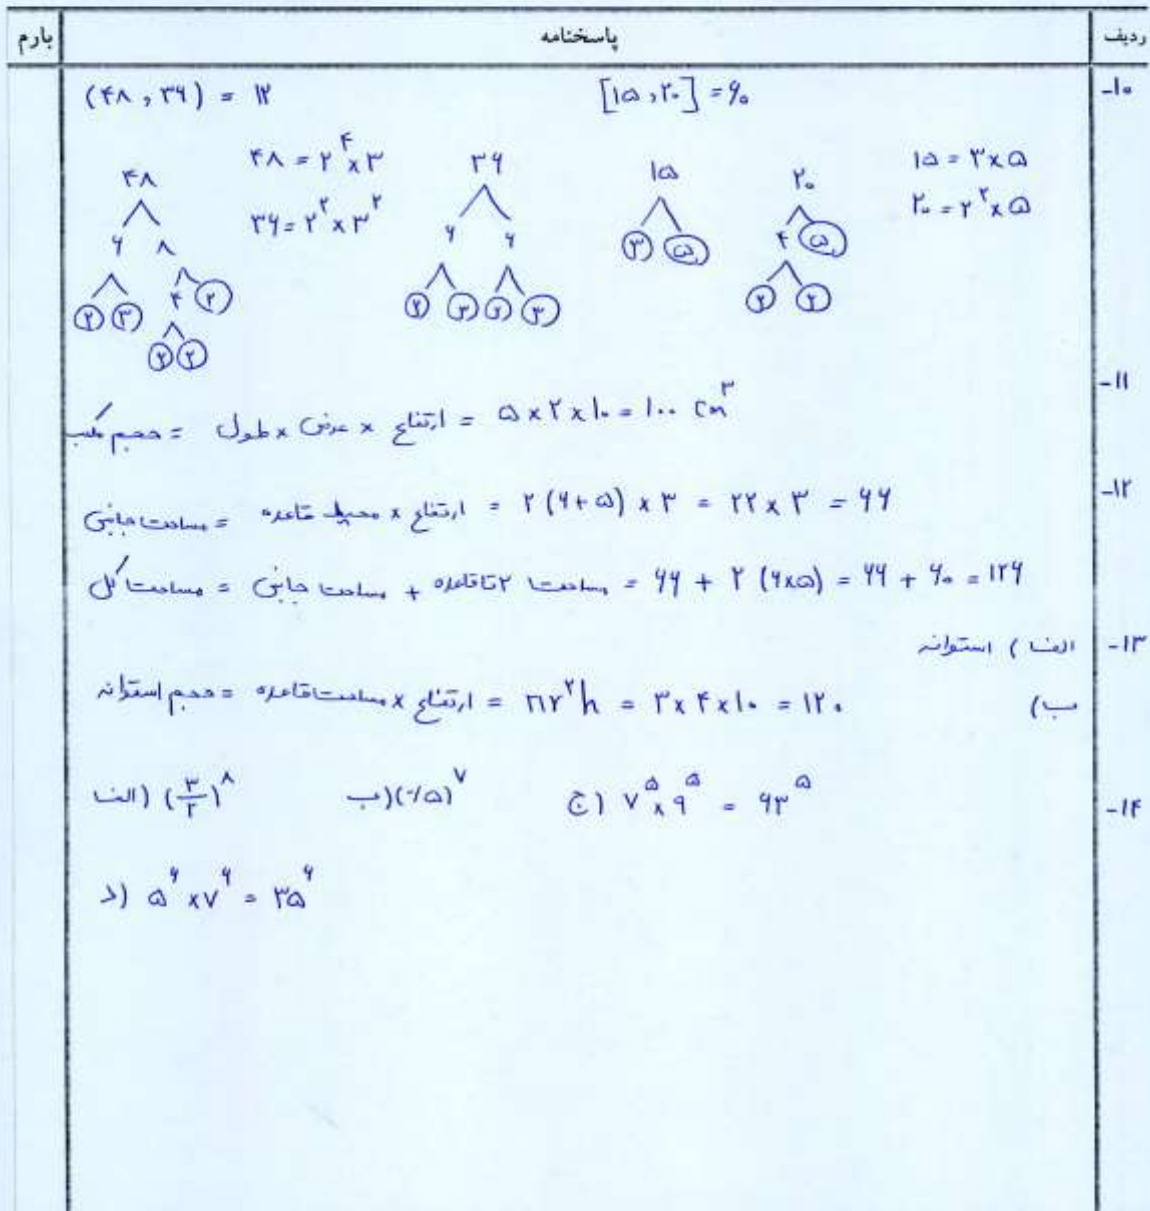 ردیف پاسخنامه بارم
۱۰-
(۴۸ , ۳۶) = ۱۲ [۱۵ , ۲۰] = ۶۰
۴۸ = ۲^۴ × ۳
۳۶ = ۲^۲ × ۳^۲
۱۵ = ۳ × ۵
۲۰ = ۲^۲ × ۵
۴۸ ۳۶ ۱۵ ۲۰
۶ ۸ ۶ ۶ ۳ ۵ ۴ ۵
۲ ۳ ۴ ۲ ۲ ۳ ۲ ۳ ۲ ۲
۲ ۲
۱۱-
حجم مکعب = طول × عرض × ارتفاع = ۵ × ۲ × ۱۰ = ۱۰۰ cm^۳
۱۲-
مساحت جانبی = محیط قاعده × ارتفاع = ۲ (۶+۵) × ۳ = ۲۲ × ۳ = ۶۶
مساحت کل = مساحت جانبی + مساحت ۲ تا قاعده = ۶۶ + ۲ (۶×۵) = ۶۶ + ۶۰ = ۱۲۶
۱۳- الف) استوانه
ب) حجم استوانه = مساحت قاعده × ارتفاع = πr^۲h = ۳ × ۴ × ۱۰ = ۱۲۰
۱۴-
الف) (۳/۲)^۸ ب) (۰/۵)^۷ ج) ۷^۵ × ۹^۵ = ۶۳^۵
د) ۵^۶ × ۷^۶ = ۳۵^۶